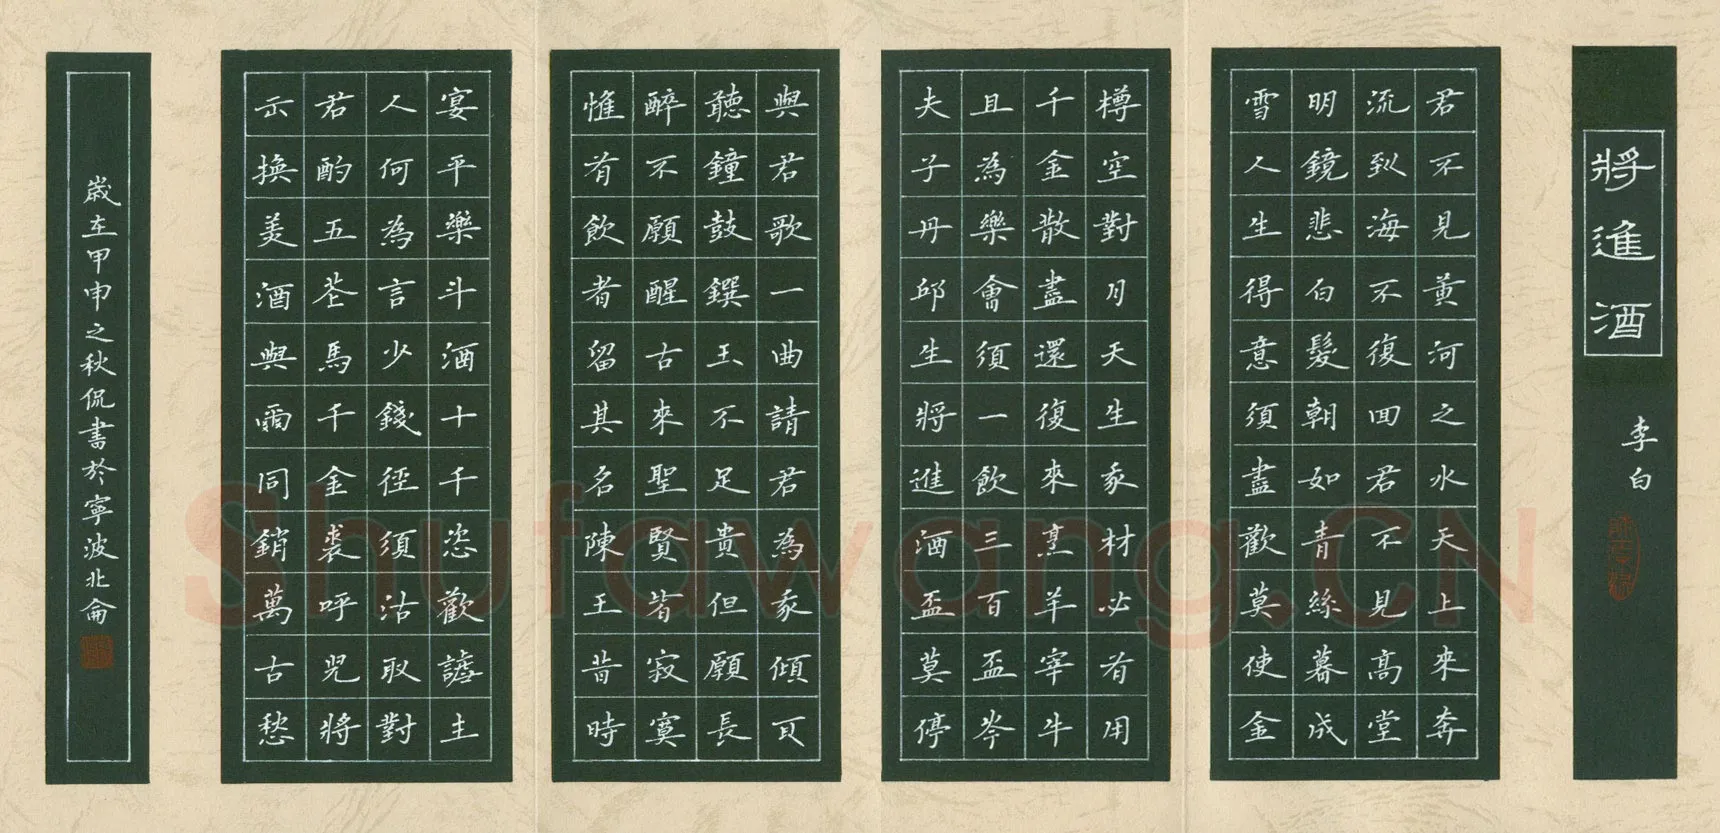 將進酒
李白
君不見黃河之水天上來奔
流到海不復回君不見高堂
明鏡悲白髮朝如青絲暮成
雪人生得意須盡歡莫使金
樽空對月天生我材必有用
千金散盡還復來烹羊宰牛
且為樂會須一飲三百盃岑
夫子丹邱生將進酒盃莫停
與君歌一曲請君為我傾耳
聽鐘鼓饌玉不足貴但願長
醉不願醒古來聖賢皆寂寞
惟有飲者留其名陳王昔時
宴平樂斗酒十千恣歡謔主
人何為言少錢徑須沽取對
君酌五花馬千金裘呼兒將
出換美酒與爾同銷萬古愁
歲在甲申之秋侃書於寧波北侖
Shufawang.CN